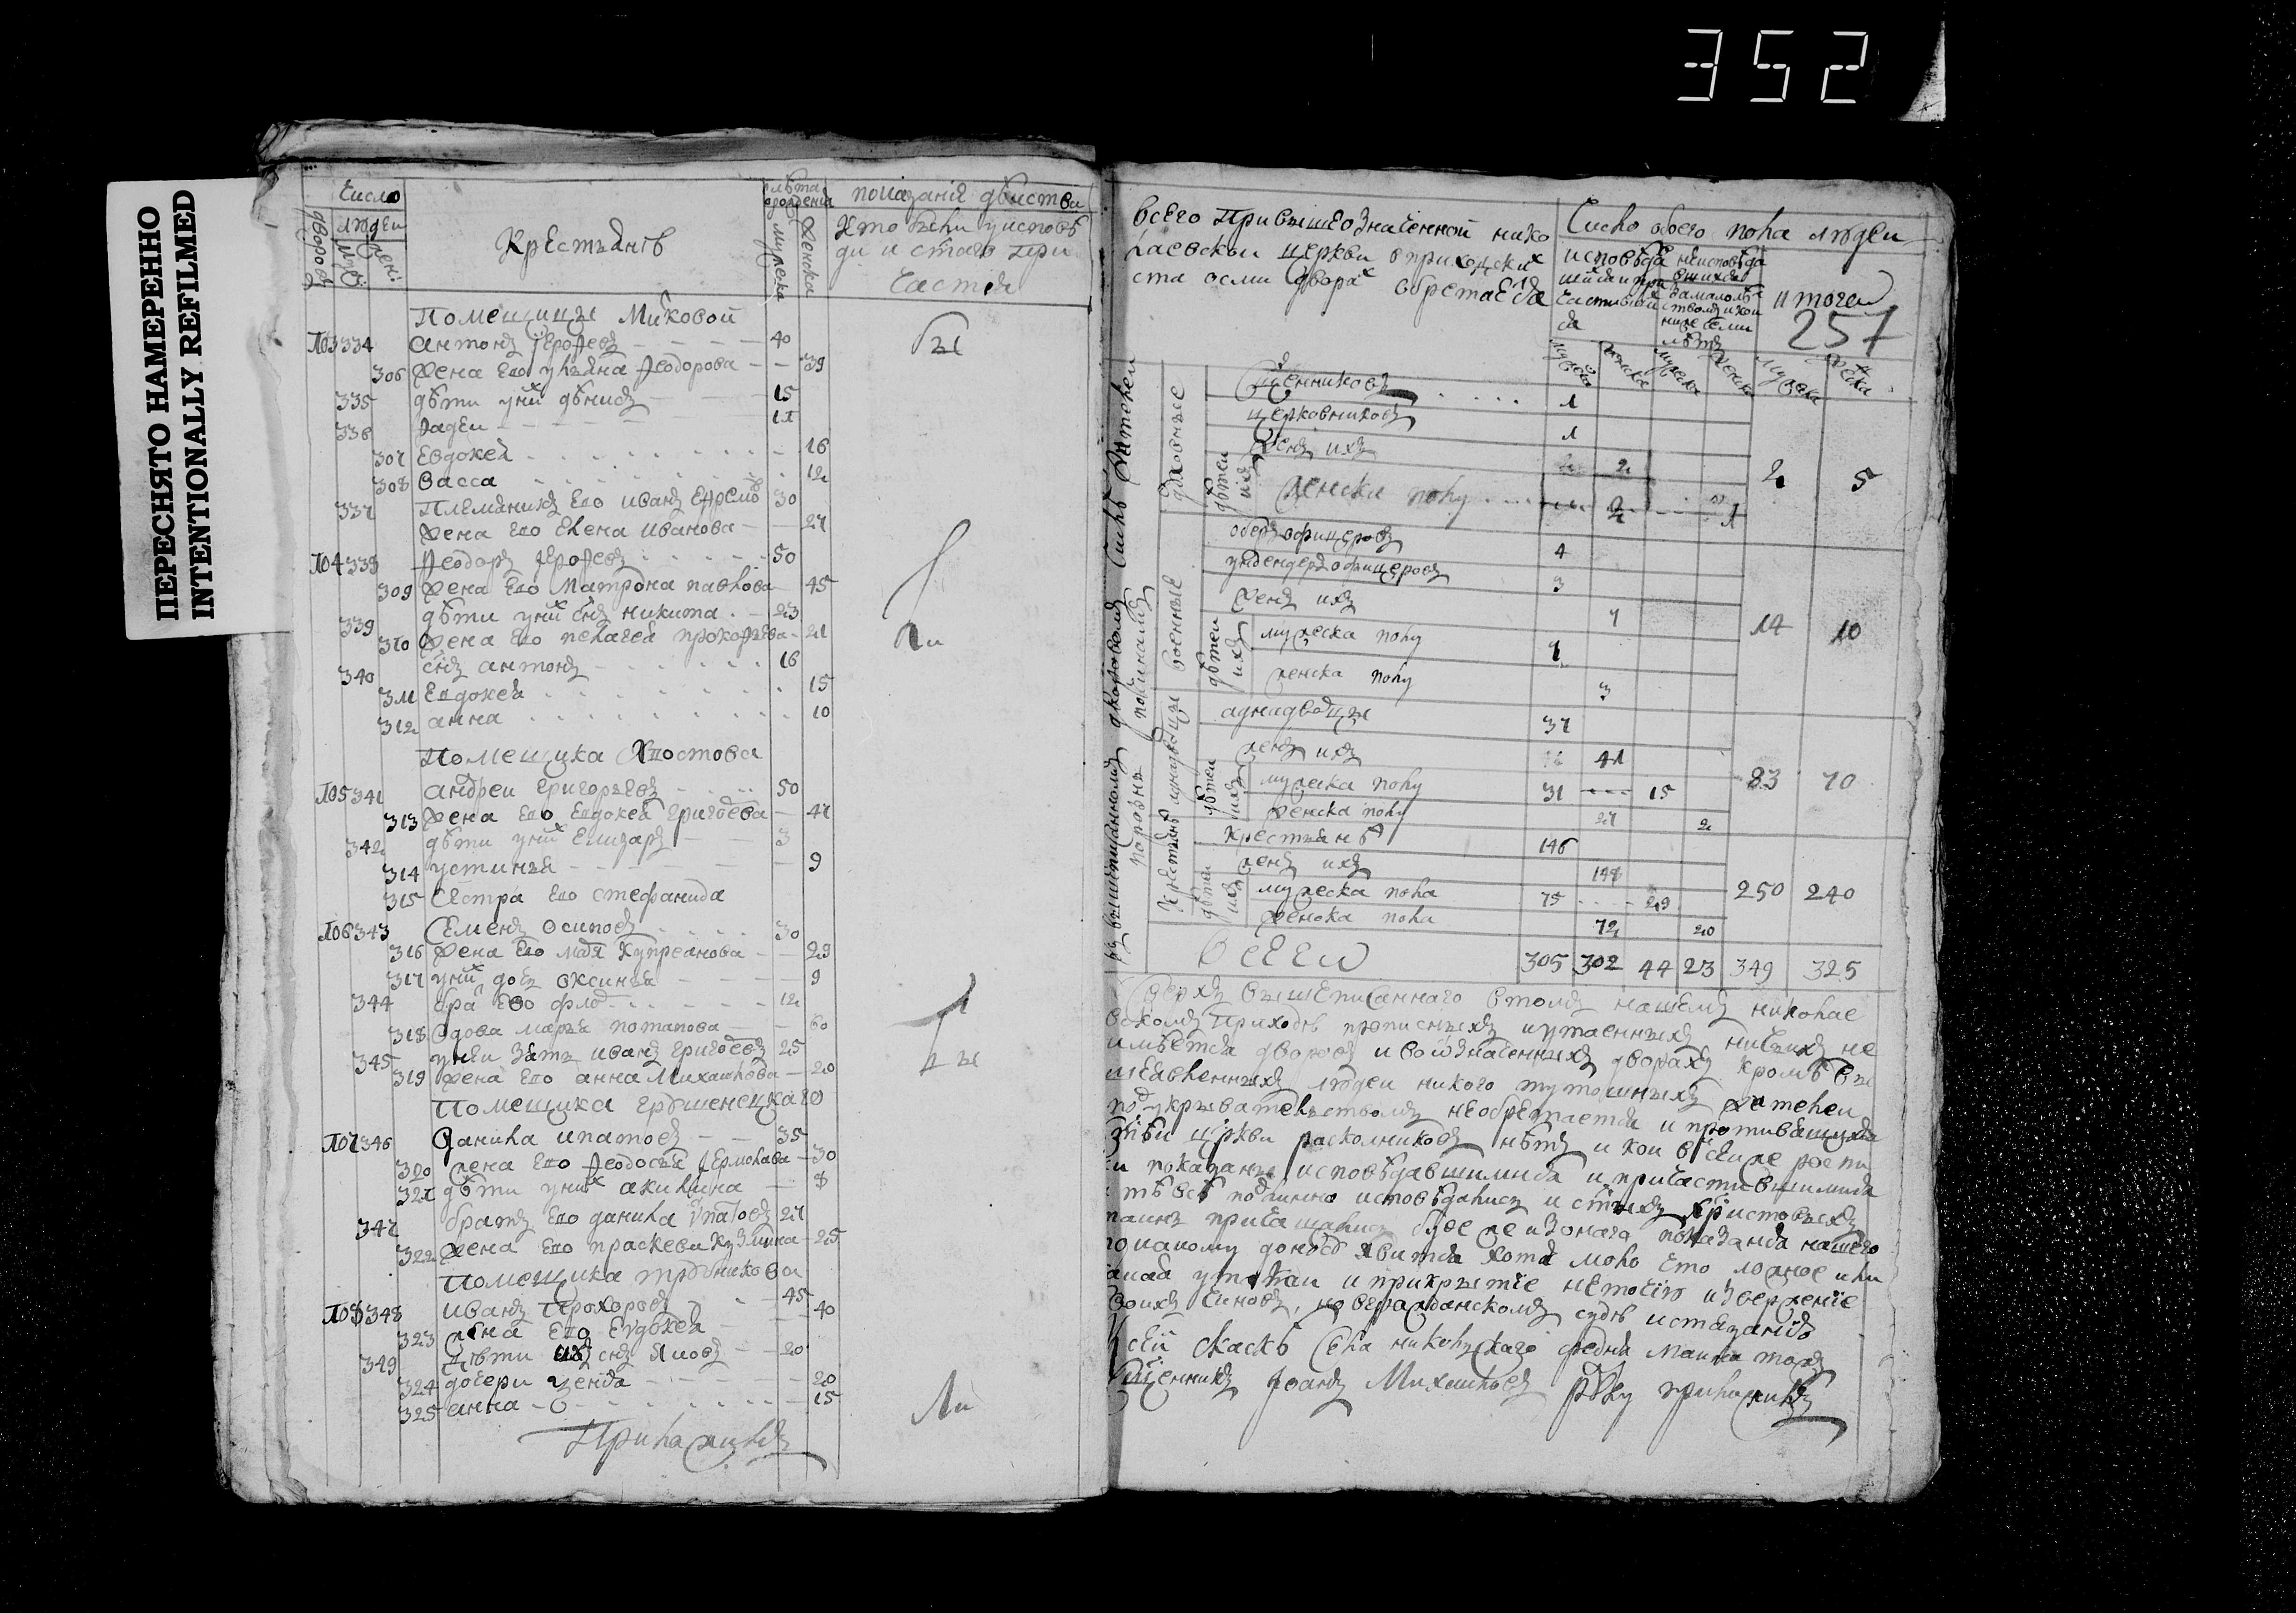 352
ПЕРЕСНЯТО НАМЕРЕННО
INTENTIONALLY REFILMED
Число
дворовъ
людеи
муж:
жен:
Крестьянъ
лѣта
рождения
мужеска
женска
показанїе дѣиства
Кто были у исповѣ
ди и стаго при
частия
Помещицы Миковой
103 334 антонъ ерофеевъ 40
306 жена ево ульяна феодорова 39
335 дѣти у них денисъ 15
336 фадеи 11
307 Евдокея 16
308 васса 12
337 племяникъ ево иванъ ефремо 30
жена ево елена иванова 27
104 338 феодоръ ерофеевъ 50
309 жена ево матрона павлова 45
339 дѣти у них снъ никита 23
310 жена ево пелагея прокофьева 21
340 снъ антонъ 16
311 Евдокея 15
312 анна 10
Помещика Хвостова
105 341 андреи григорьевъ 50
313 жена ево евдокея григоева 47
342 дѣти у них Елизаръ 3
314 устинья 9
315 сестра ево стефанида
106 343 Семенъ осиповъ 30
316 жена ево Купреанова 29
317 у них дочь оксинья 9
344 бра ево 12
318 вдова марья потапова 60
345 у неи зять иванъ григоевъ 25
319 жена ево анна Михаилова 20
Помещика
107 346 данила ипатовъ 35
320 жена ево феодосья Ермолаева 30
321 дѣти у них акилина 8
347 братъ ево данила ипатовъ 27
322 жена ево праскева кузмина 25
помещика
108 348 иванъ прохоровъ 45
323 жена ево евдокея 40
349 дѣти их снъ яковъ 20
324 дочери 20
325 анна 15
Бы
ли
бы
ли
Приложилъ
всего при вышеозначенной нико
лаевскои церкви в приходских
ста осми дворах обретается
Число обоего пола людеи
исповѣда
шихся и при
частивших
ся
неисповѣда
вшихся
за малолѣ
ством и кои
ниже семи
лѣтъ
итогеи
257
мужеска женска мужеска женска мужеска женска
духовные
Сщенниковъ 1
церковниковъ 1
женъ ихъ 2
дѣтеи ихъ
женска полу 2 1
2 5
военные
оберъ офицеровъ 4
ундеръ офицеровъ 3
женъ ихъ 7
дѣтеи ихъ
мужеска полу 7
женска полу 3
14 10
аднадворцы
аднадворцы 37
женъ ихъ 41
дѣтеи ихъ
мужеска полу 31 15
женска полу 27 2
83 70
Крестьянъ
крестьянъ 146
женъ ихъ 148
дѣти ихъ
мужеска пола 75 29
женска пола 72 20
250 240
всеги 305 302 44 23 349 325
Сверхъ вышеписаннаго в томъ нашемъ николае
вскомъ приходѣ прописныхъ и утаенныхъ ничьихъ не
имѣется дворовъ и во означенныхъ дворахъ кромѣ вы
шеявленныхъ людеи никого тутошныхъ жителеи
под укрывателствомъ необретается и противящихся
стѣи цркви расколниковъ нѣтъ и кои в сеи же роспи
си показаны исповѣдавшимися и причастившимися
тѣ всѣ подлинно исповѣдались и стыхъ христовыхъ
таинъ причащались буде же из онаго показания нашего
по какому доносѣ явится хотя мало что ложное или
какая утаики и прикрытие не токмо извержение
своихъ чиновъ, но в гражданскомъ судѣ истязанию
К сеи скаскѣ села николскаго
Сщенникъ Иоаннъ Михаиловъ руку приложилъ